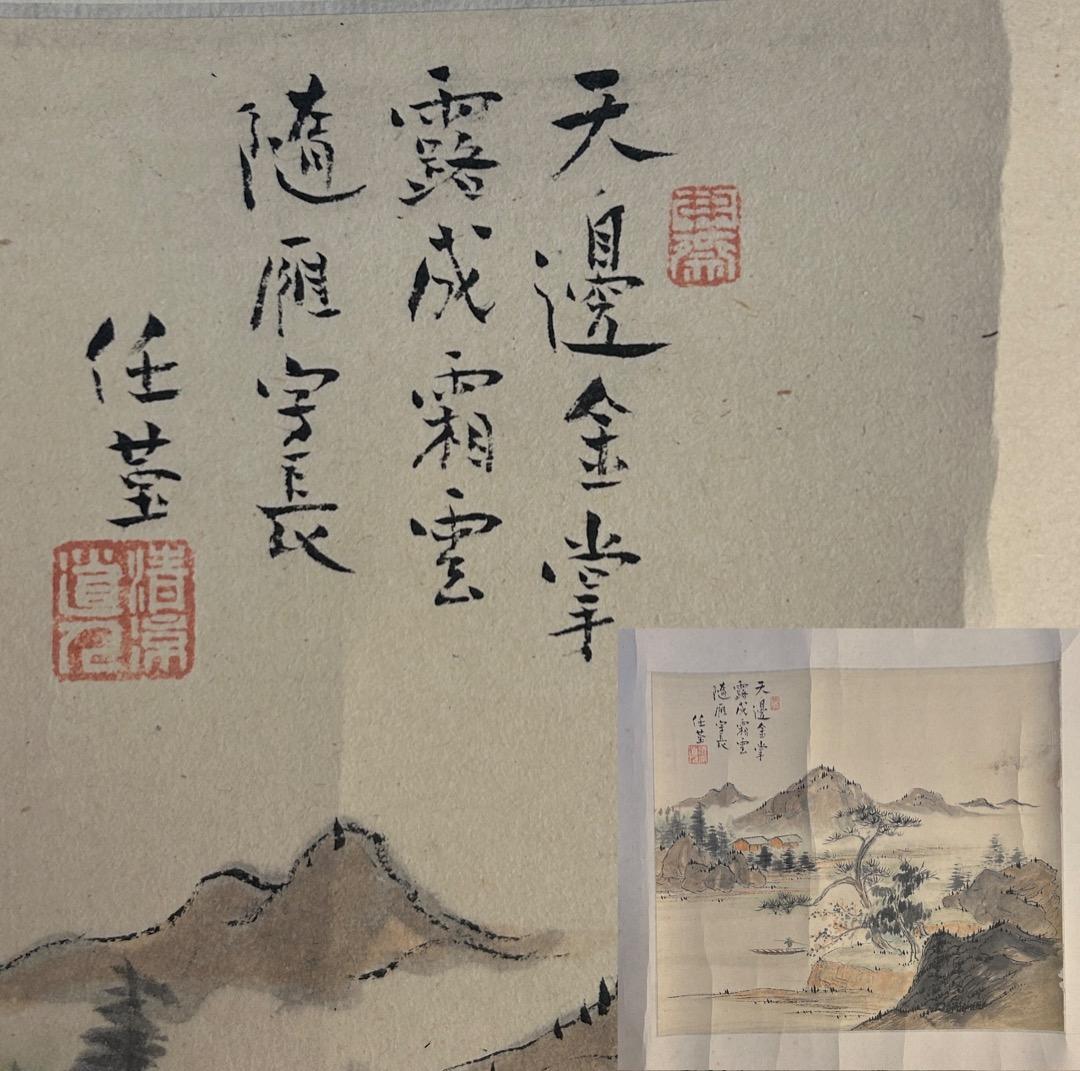 天邊金掌
露成霜雲
隨雁字長
任堇
清淨
道人